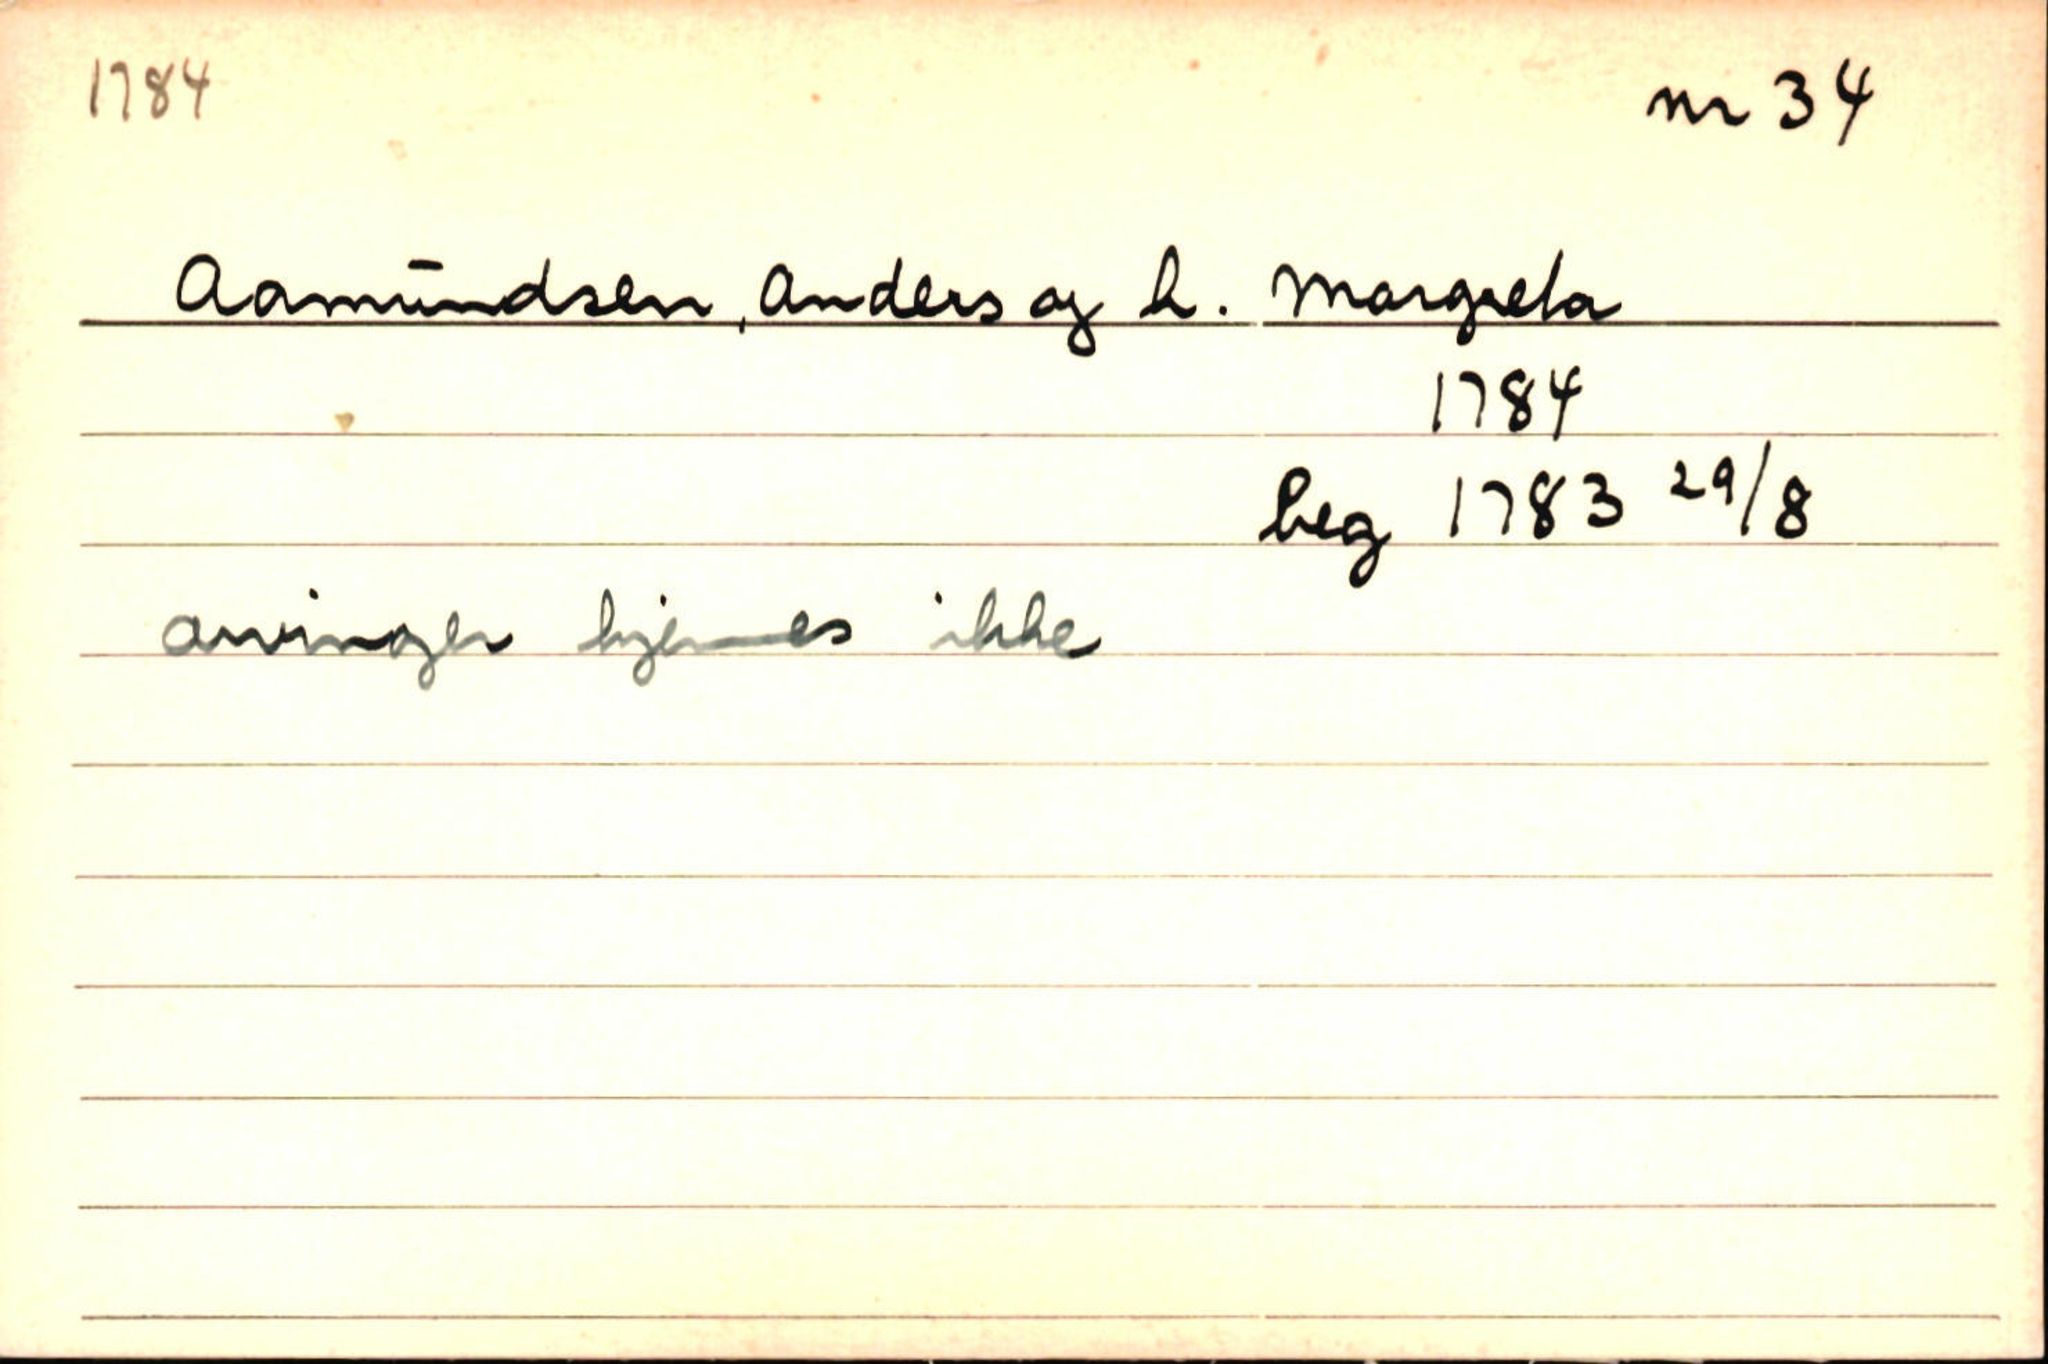 1784
nr 34
Aamundsen, Anders og h. Margreta
1784
beg 1783 29/8
arvinger kjennes ikke